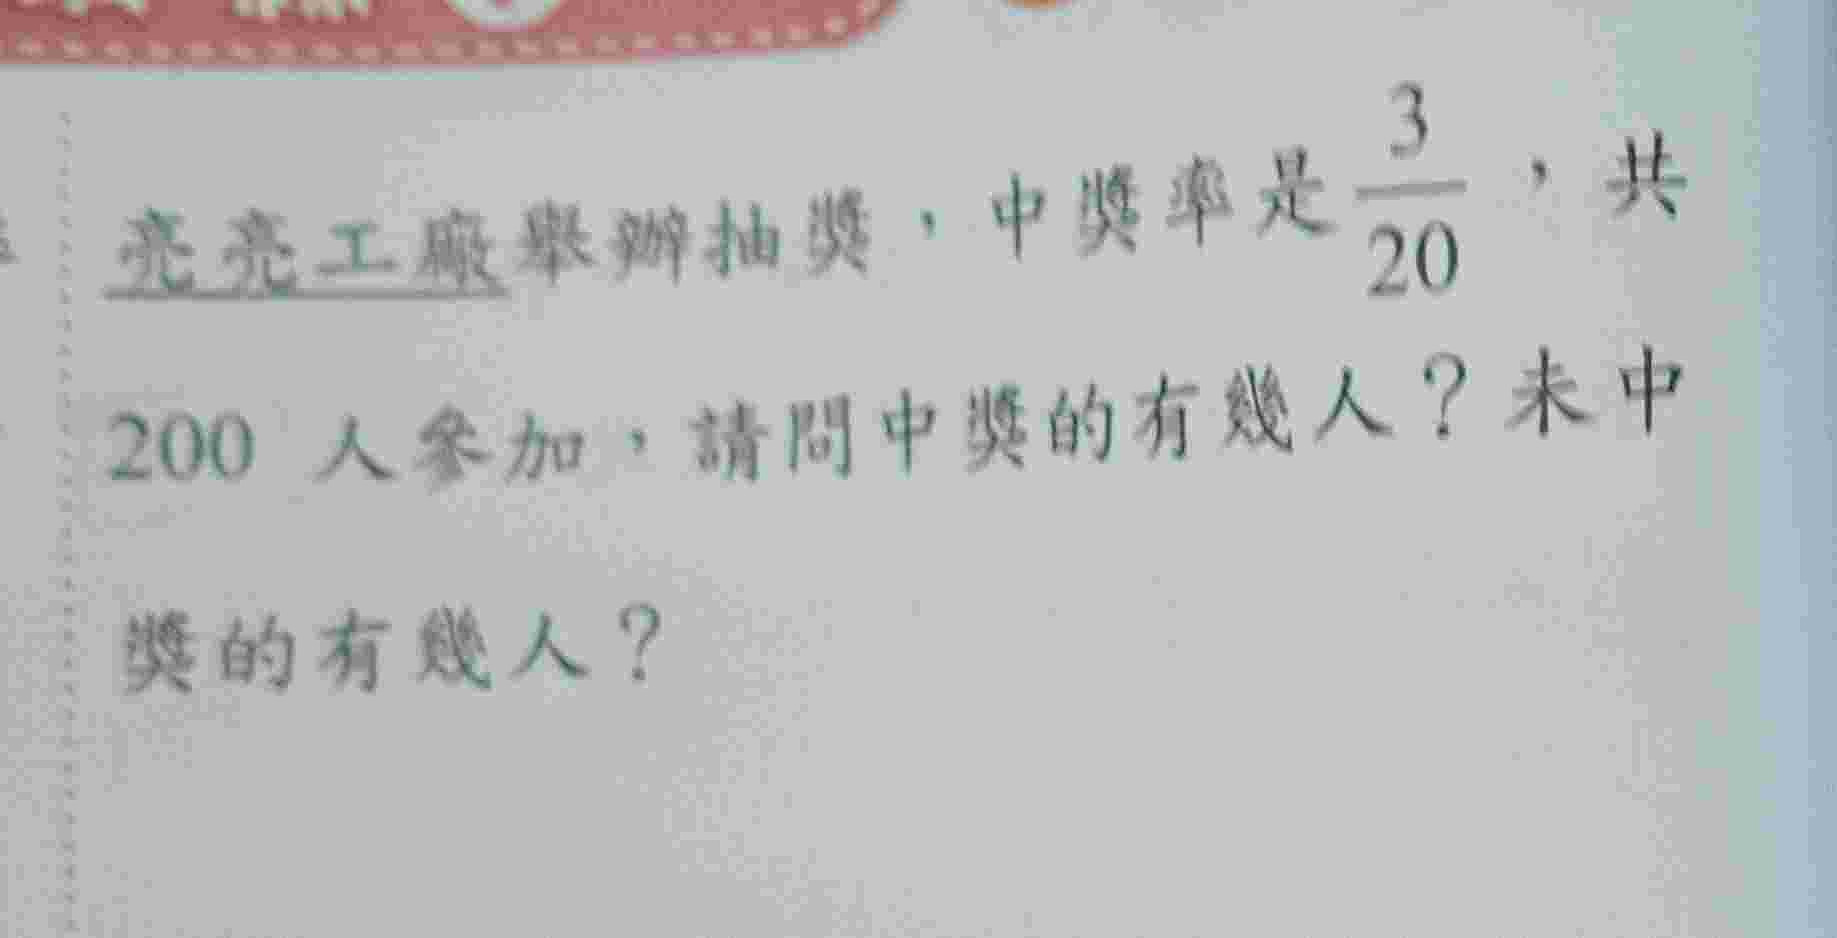 亮亮工廠舉辦抽獎，中獎率是3/20，共
200 人參加，請問中獎的有幾人？未中
獎的有幾人？